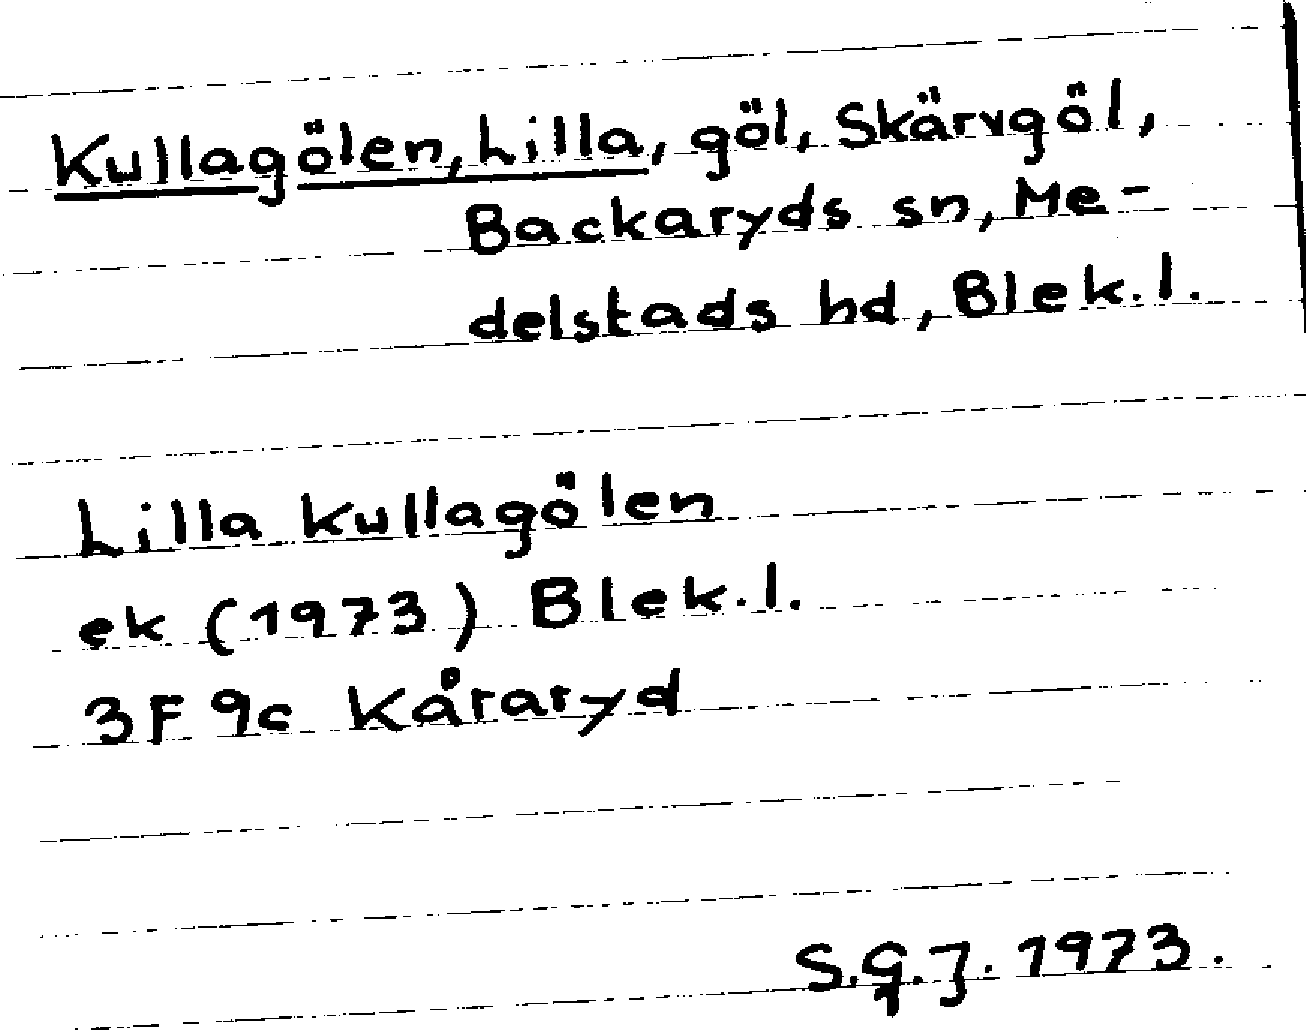 Kullagölen, Lilla, göl, Skärvgöl,
Backaryds sn, Me-
delstads hd, Blek. l.
Lilla Kullagölen
ek (1973) Blek. l.
3F 9c Kåraryd
S.G.J. 1973.